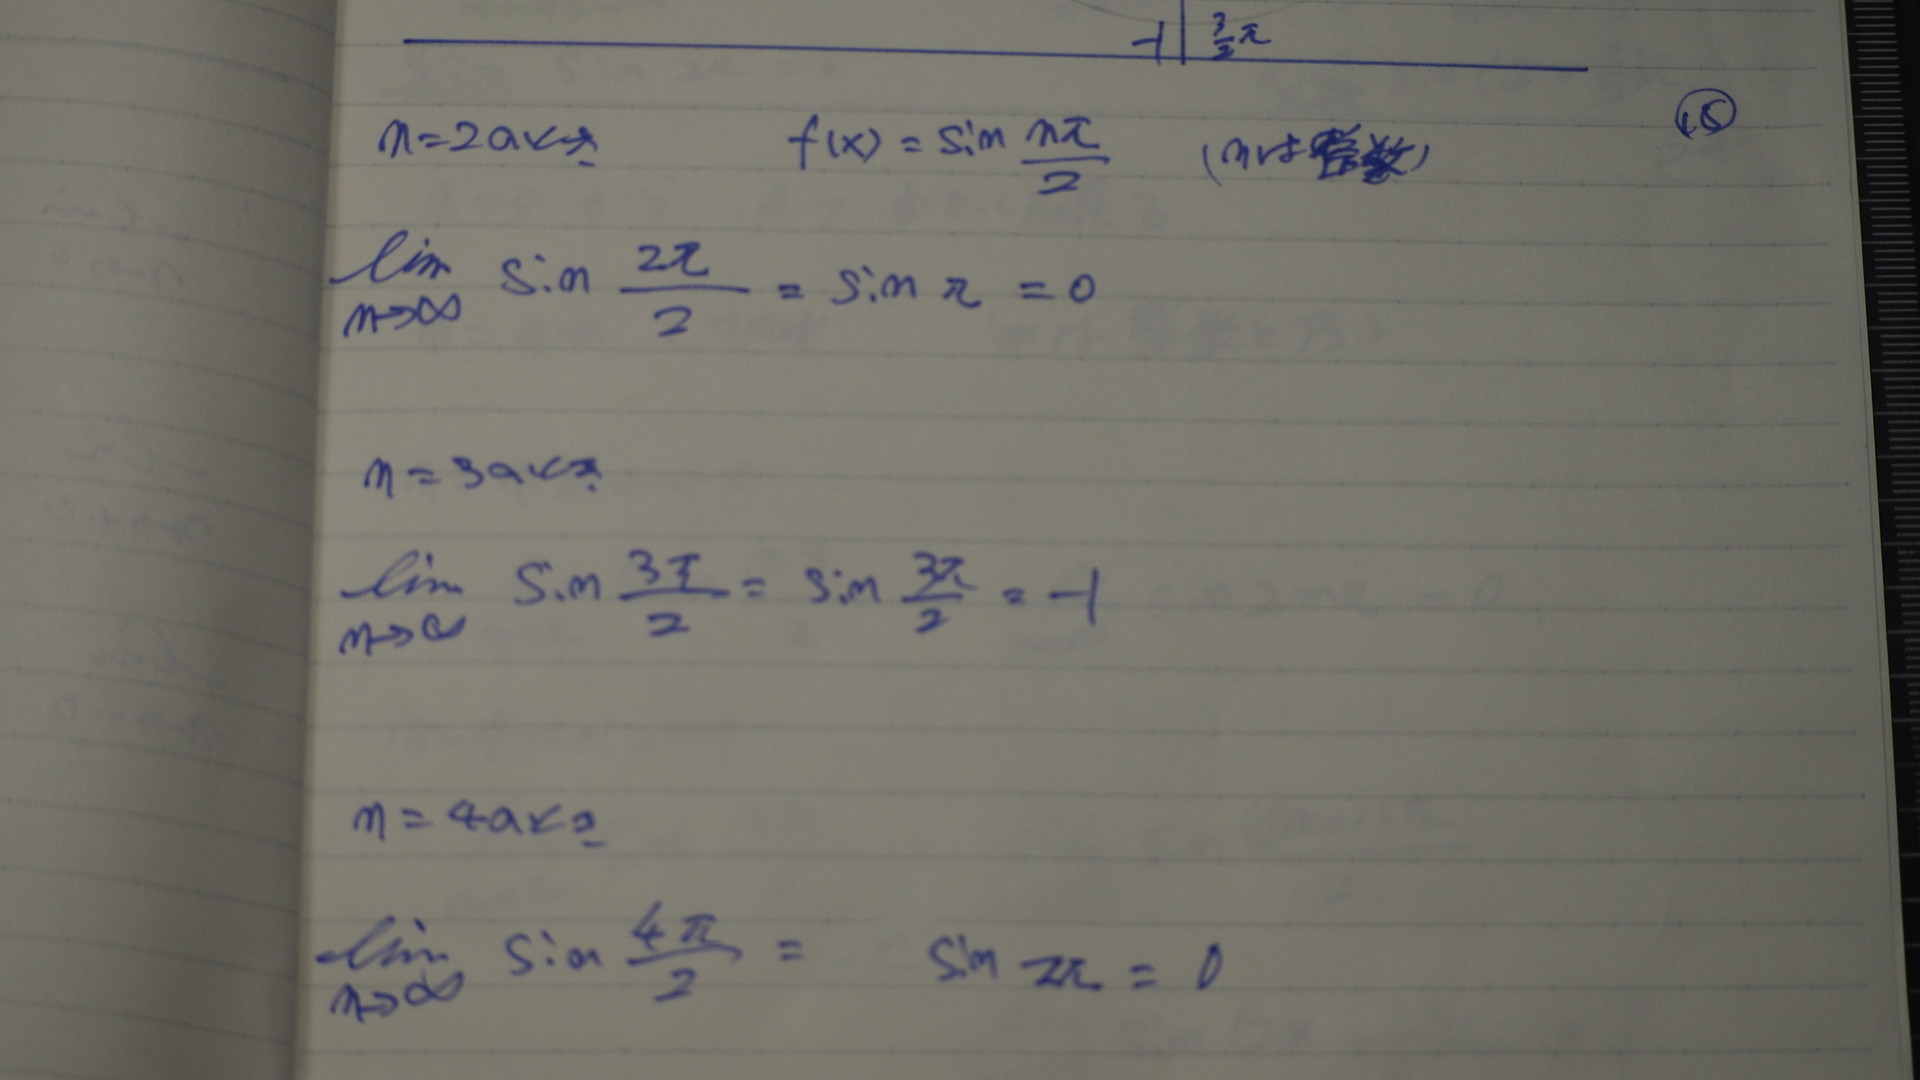 -1 3/2 π
15
n=2のとき f(x) = sin nπ/2 (nは整数)
lim n→∞ sin 2π/2 = sin π = 0
n=3のとき
lim n→∞ sin 3π/2 = sin 3π/2 = -1
n=4のとき
lim n→∞ sin 4π/2 = sin 2π = 0